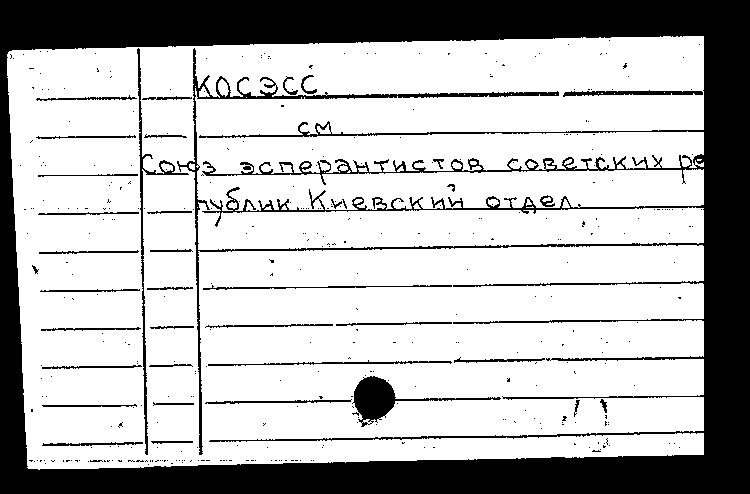 КОСЭСС.
см.
Союз эсперантистов советских ре
публик. Киевский отдел.